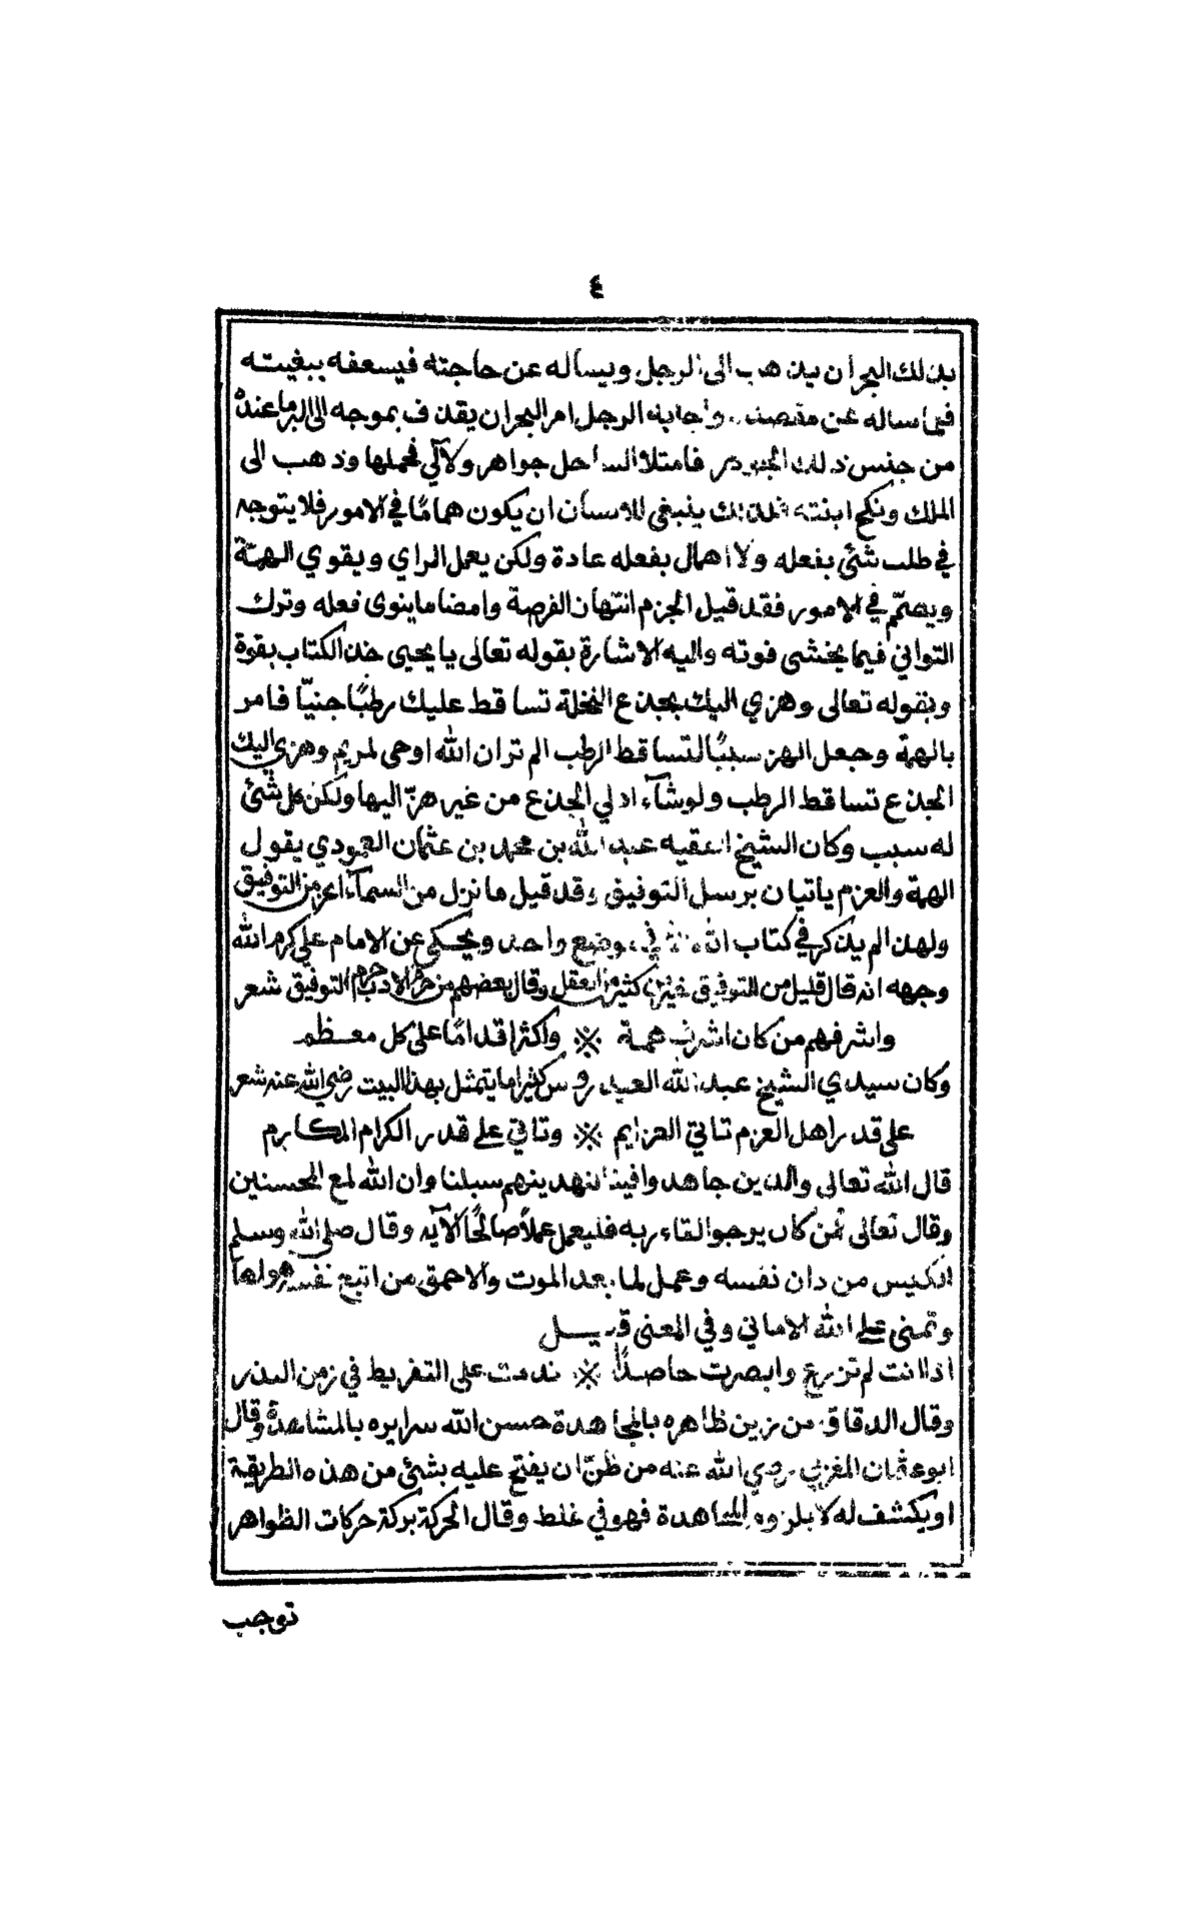 ٤
بذلك البحر ان يذهب الى الرجل ويساله عن حاجته فيسعفه ببغيته
فيما ساله عن مقصده واجابه الرجل امر البحر ان يقذف بموجه الى البر ما عنده
من جنس ذلك الجوهر فامتلا الساحل جواهر ولآلي فحملها وذهب الى
الملك ونكح ابنته فلذلك ينبغي للانسان ان يكون هماما في الامور فلا يتوجه
في طلب شئ بفعله ولا اهمال بفعله عادة ولكن يعمل الراي ويقوي الهمّة
ويصمّم في الامور فقد قيل الحزم انتهان الفرصة وامضا ما ينوى فعله وترك
التواني فيما يخشى فوته واليه الاشارة بقوله تعالى يا يحيى خذ الكتاب بقوة
وبقوله تعالى وهزي اليك بجذع النخلة تساقط عليك رطبًا جنيّا فامر
بالهمة وجعل الهز سببًا لتساقط الرطب الم تر ان الله اوحى لمريم وهزي اليك
الجذع تساقط الرطب ولو شآء ادلي الجذع من غير هزّ اليها ولكن كل شئ
له سبب وكان الشيخ الفقيه عبد الله بن محمد بن عثمان العمودي يقول
الهمة والعزم ياتيان برسل التوفيق وقد قيل ما نزل من السمآء اعز من التوفيق
ولهذا لم يذكر في كتاب الله في موضع واحد ويحكى عن الامام علي كرم الله
وجهه انه قال قليل من التوفيق خير من كثير من العقل وقال بعضهم من حرم الادب حرم التوفيق شعر
واشرفهم من كان اشرف همة ※ واكثر اقدامًا على كل معظم
وكان سيدي الشيخ عبد الله العيدروس كثيرا ما يتمثل بهذا البيت رضي الله عنه شعر
على قدر اهل العزم تاتي العزايم ※ وتاتي على قدر الكرام المكارم
قال الله تعالى والذين جاهدوا فينا لنهدينهم سبلنا وان الله لمع المحسنين
وقال تعالى فمن كان يرجوا لقاء ربه فليعمل عملاً صالحًا الآيه وقال صلى الله وسلم
الكيس من دان نفسه وعمل لما بعد الموت والاحمق من اتبع نفسه هواها
وتمنى على الله الاماني وفي المعنى قيل
اذا انت لم تزرع وابصرت حاصدًا ※ ندمت على التفريط في زمن البذر
وقال الدقاق من زين ظاهره بالمجاهدة حسن الله سرايره بالمشاهدة وقال
ابو عثمان المغربي رضي الله عنه من ظنّ ان يفتح عليه بشئ من هذه الطريقة
او يكشف له لا بلزوم المشاهدة فهو في غلط وقال الحركة بركة حركات الظواهر
توجب